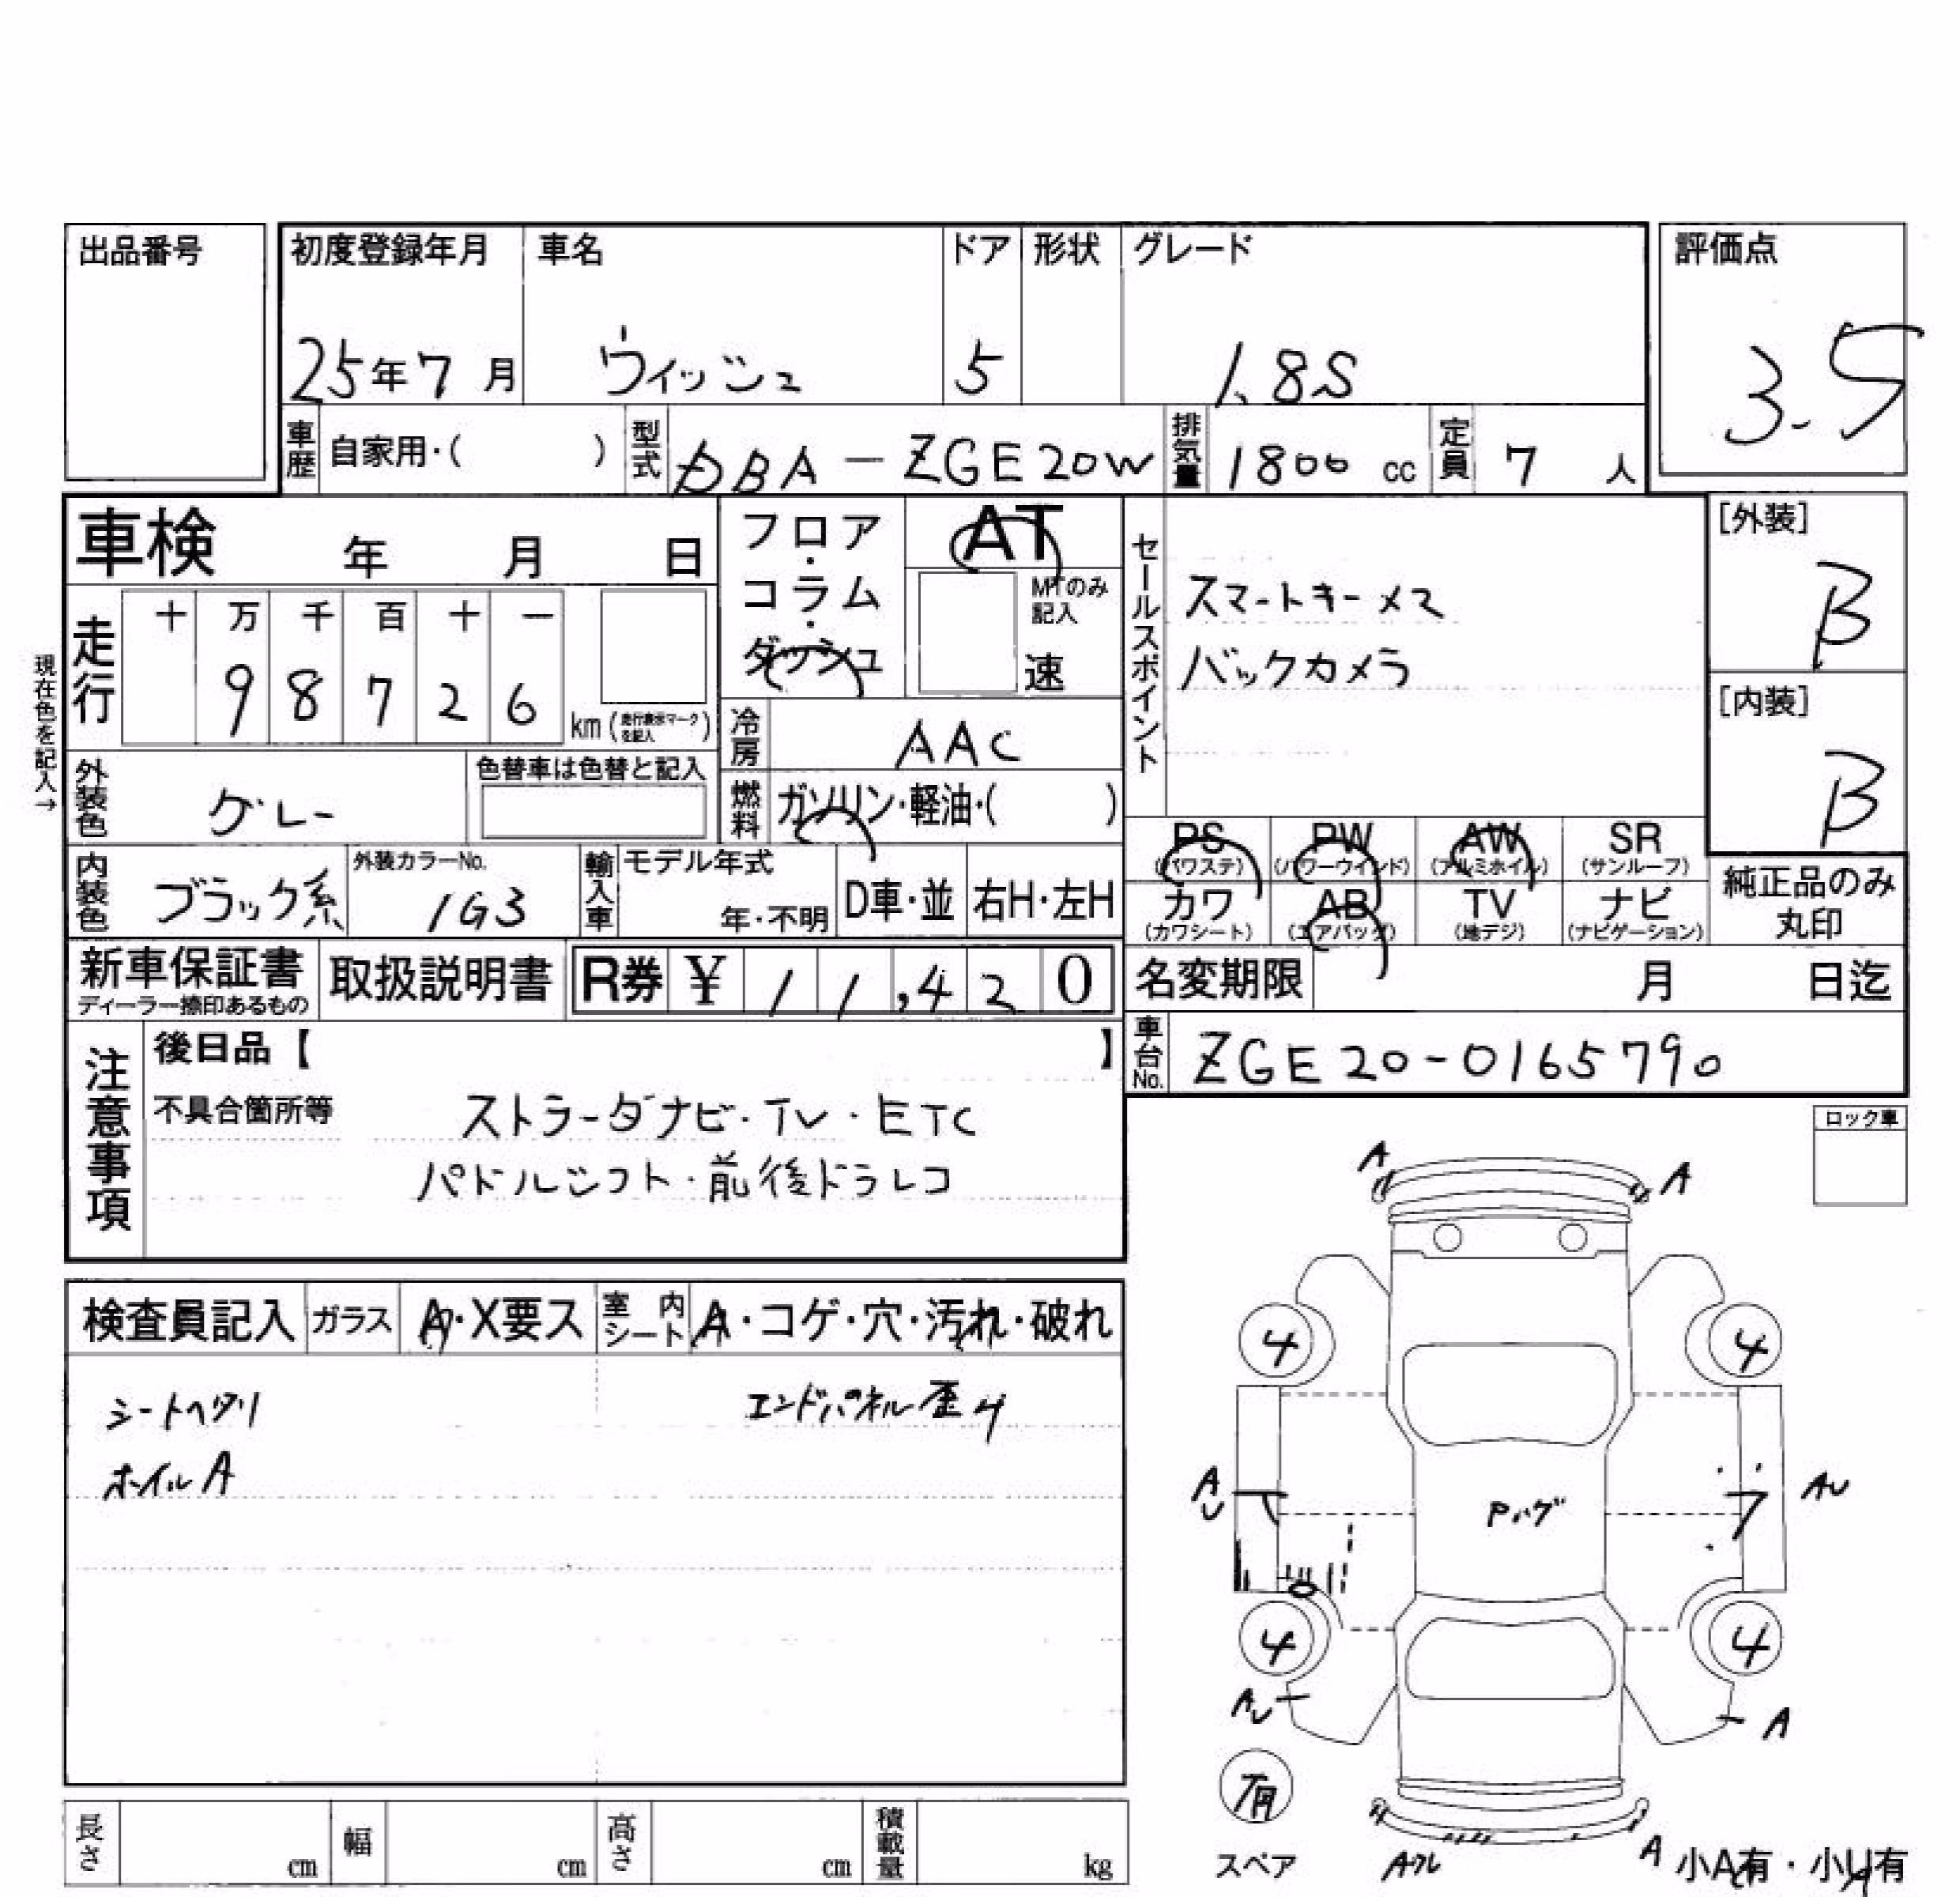 出品番号
初度登録年月 車名 ドア 形状 グレード
評価点
25年7月 ウィッシュ 5 1.8S
3.5
車歴 自家用・( ) 型式 DBA-ZGE20W 排気量 1800 cc 定員 7 人
車検 年 月 日
フロア・コラム・ダッシュ
AT
MTのみ記入
速
セールスポイント
スマートキーメマ
バックカメラ
[外装]
B
[内装]
B
現在色を記入→
走行 十 万 千 百 十 一
9 8 7 2 6 km(走行表示マークを記入)
冷房 AAC
外装色 グレー 色替車は色替と記入
燃料 ガソリン・軽油・( )
PS (パワステ) PW (パワーウィンド) AW (アルミホイル) SR (サンルーフ)
内装色 ブラック系 外装カラーNo. 1G3 輸入車 モデル年式 年・不明 D車・並 右H・左H
カワ (カワシート) AB (エアバッグ) TV (地デジ) ナビ (ナビゲーション)
純正品のみ丸印
新車保証書 ディーラー捺印あるもの 取扱説明書 R券 ¥ 11,420
名変期限 月 日迄
注意事項
後日品【 】
車台No. ZGE20-0165790
不具合箇所等 ストラーダナビ・TV・ETC
パドルシフト・前後ドラレコ
ロック車
A A
検査員記入 ガラス A・X要ス 室内シート A・コゲ・穴・汚れ・破れ
シートヘタリ エンドパネル歪
ホイルA
4 4
AU Pハゲ AU
4 4
AU A
有
スペア
A A
小A有・小U有
長さ cm 幅 cm 高さ cm 積載量 kg